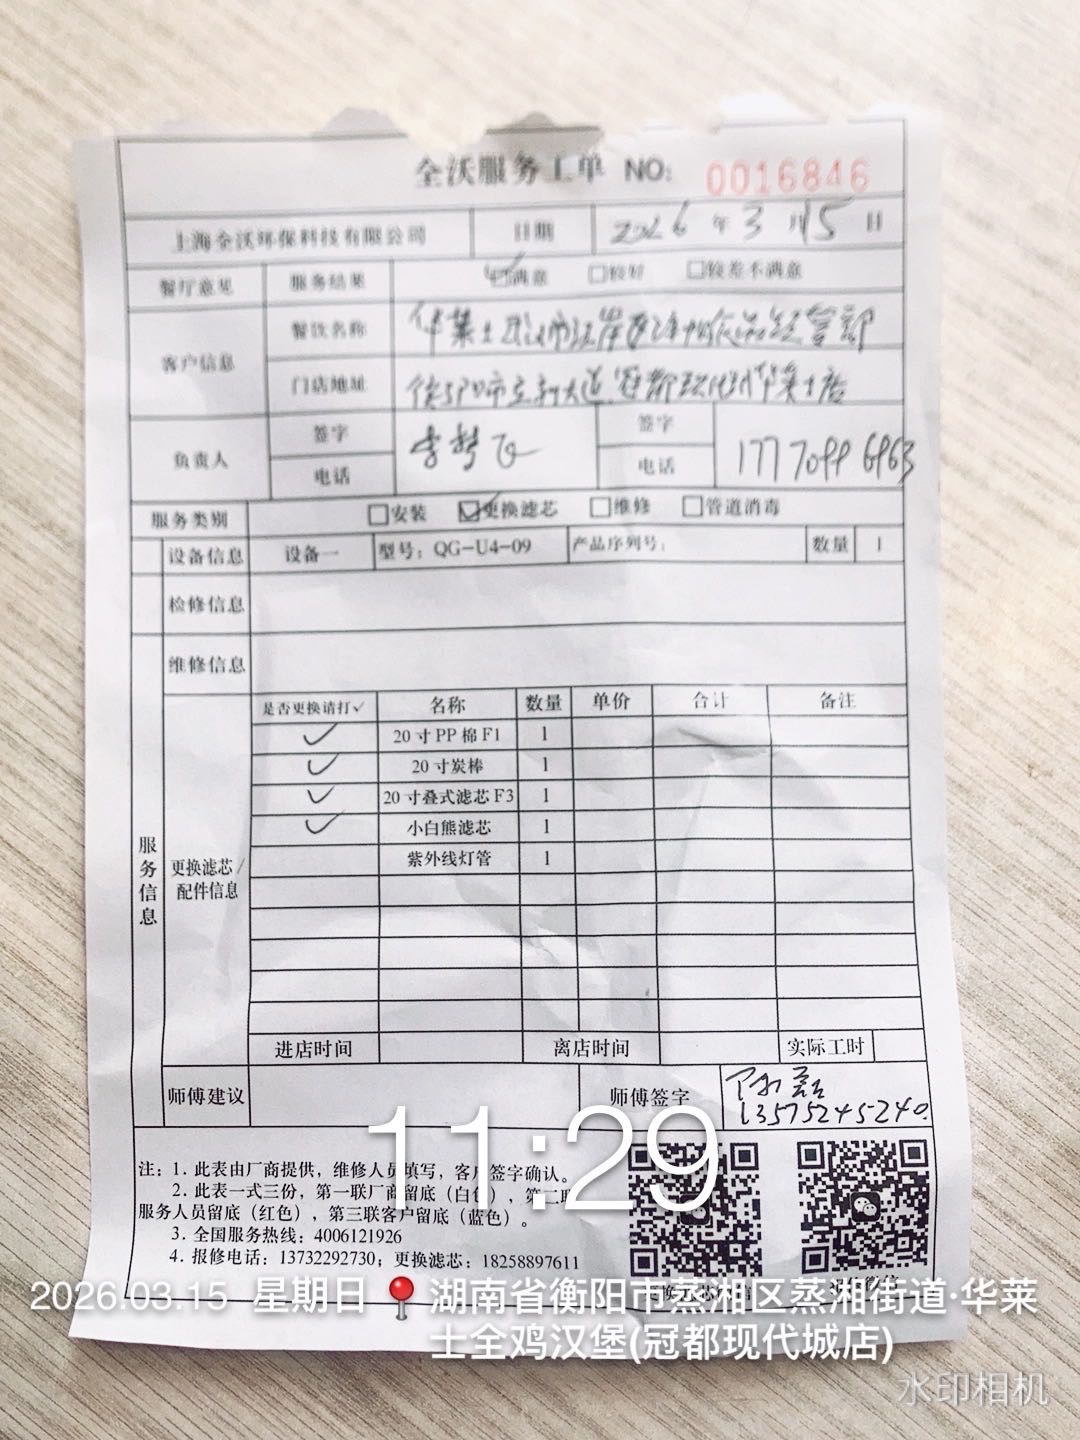 全沃服务工单 NO: 0016846
上海全沃环保科技有限公司 日期 2026 年 3 月 15 日
餐厅意见 服务结果 满意 较好 较差不满意
客户信息 餐饮名称 华莱士 经营部
门店地址 大道 冠都现代城华莱士店
负责人 签字 李梦飞 签字
电话 电话 17770996963
服务类别 安装 更换滤芯 维修 管道消毒
设备信息 设备一 型号: QG-U4-09 产品序列号: 数量 1
检修信息
维修信息
是否更换请打✓ 名称 数量 单价 合计 备注
✓ 20寸PP棉F1 1
✓ 20寸炭棒 1
✓ 20寸叠式滤芯F3 1
✓ 小白熊滤芯 1
紫外线灯管 1
服务信息
更换滤芯/
配件信息
进店时间 离店时间 实际工时
师傅建议 师傅签字 陈磊
13575245240
11:29
注: 1. 此表由厂商提供, 维修人员填写, 客户签字确认。
2. 此表一式三份, 第一联厂商留底(白色), 第二联
服务人员留底(红色), 第三联客户留底(蓝色)。
3. 全国服务热线: 4006121926
4. 报修电话: 13732292730; 更换滤芯: 18258897611
2026.03.15 星期日 湖南省衡阳市蒸湘区蒸湘街道·华莱
士全鸡汉堡(冠都现代城店)
水印相机